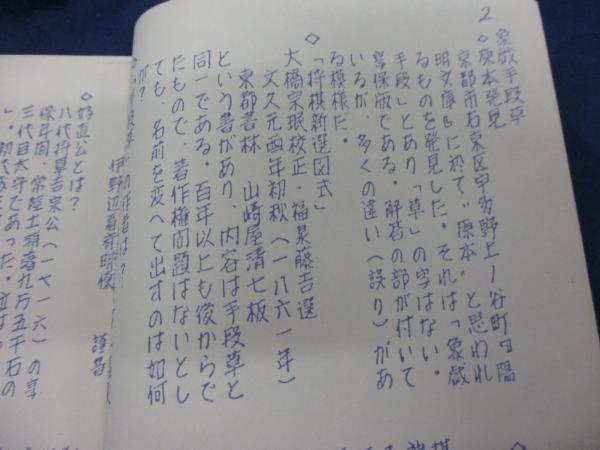 2
象戯手段草
◇ 原本発見
京都市右京区宇多野上ノ谷町ヨ陽
明文庫Bに於て"原本"と思われ
るものを発見した。それは「象戯
手段」とあり「草」の字はない。
享保版である。解答の部が付いて
いるが、多くの違い(誤り)があ
る模様だ。
◇
「将棋新選図式」
大橋宗珉校正・福泉藤吉選
文久元酉年初秋(一八六一年)
東都書林 山崎屋清七板
という書があり、内容は手段草と
同一である。百年以上も後からで
たもので、著作権問題はないとし
ても、名前を変へて出すのは如何
が?
の作者は?
伊野辺看斎
謹呈
◇
好直公とは?
八代将軍吉宗公(一七一六)の享
保年間、常陸土浦
三代目太守であった。